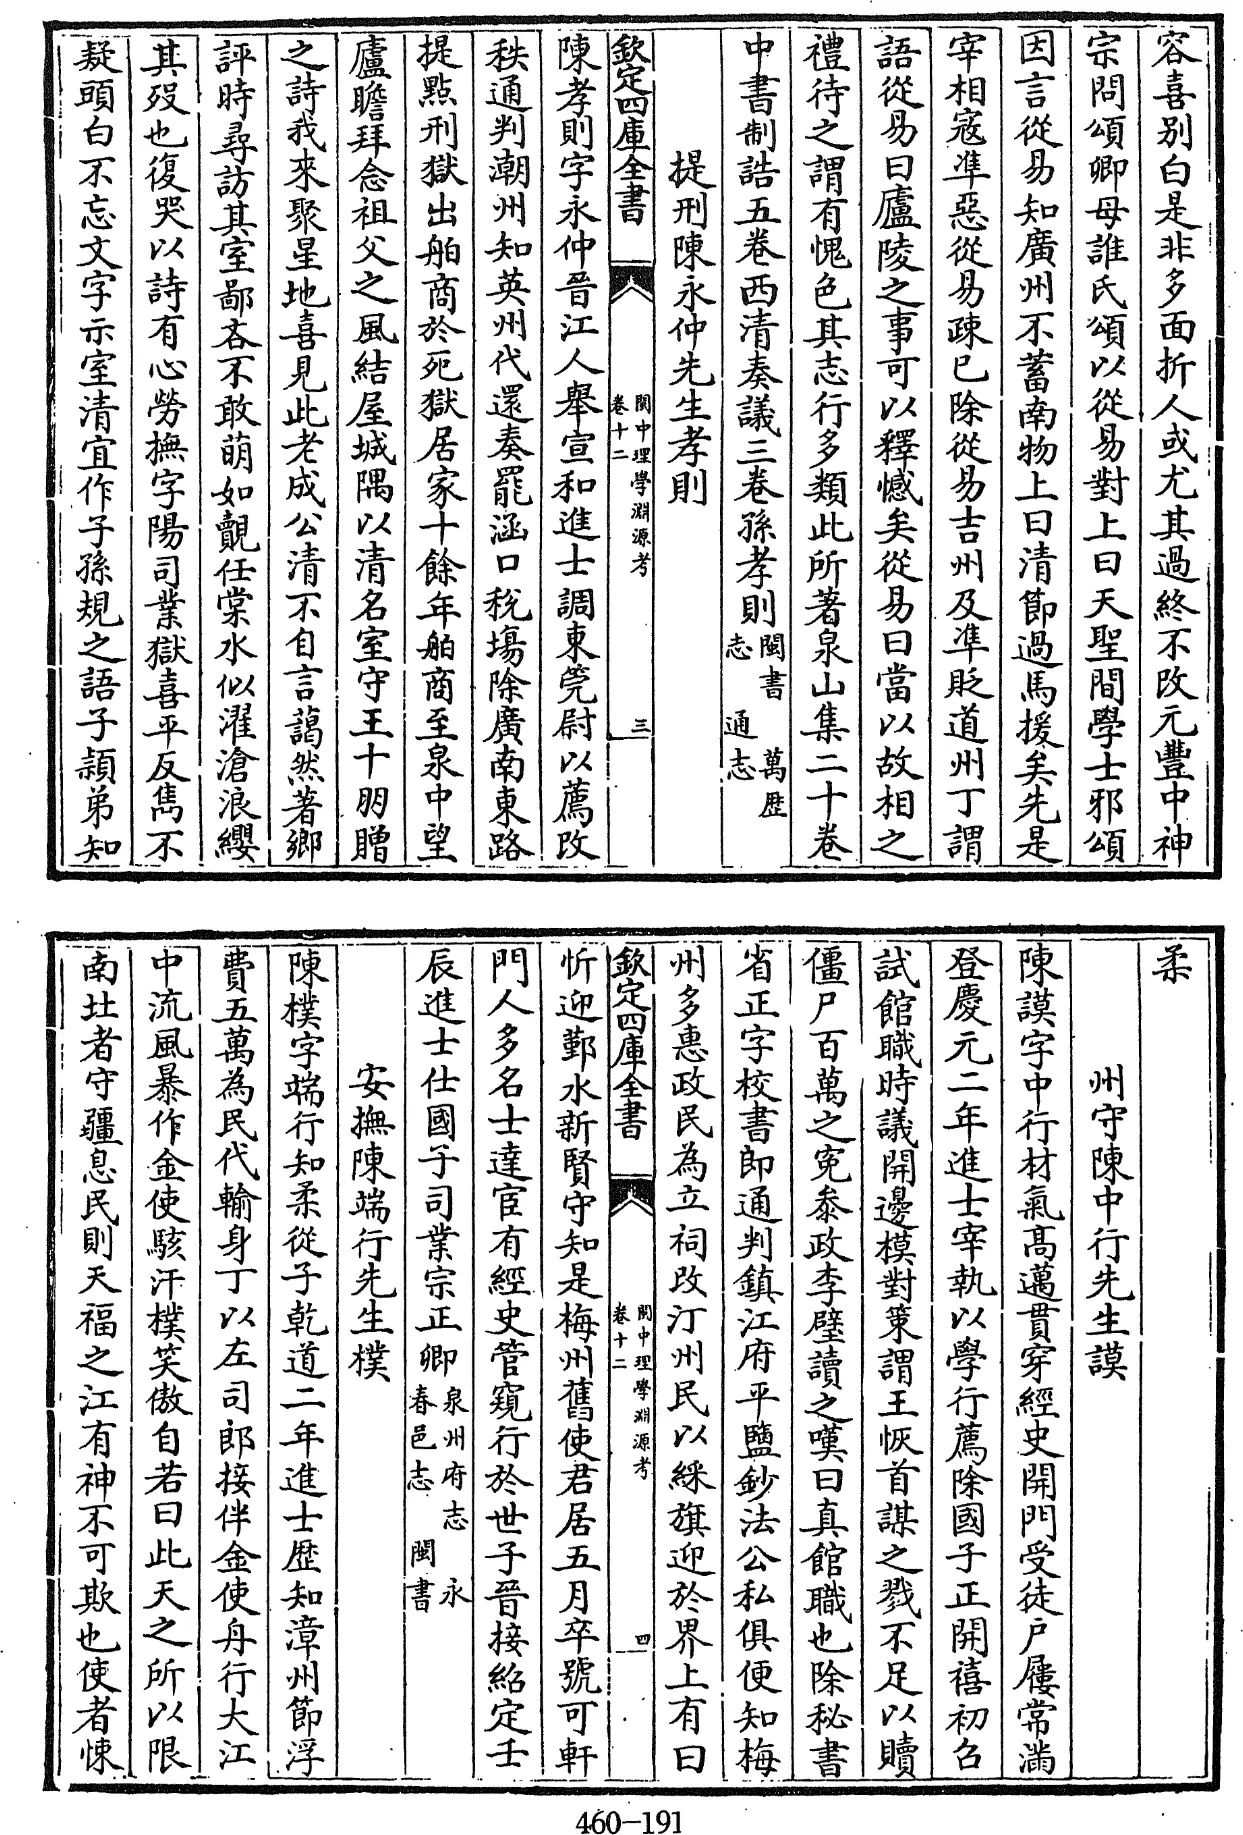 容喜别白是非多面折人或尤其過終不改元豐中神
宗問頌卿母誰氏頌以從易對上曰天聖間學士邪頌
因言從易知廣州不蓄南物上曰清節過馬援矣先是
宰相寇準惡從易疎已除從易吉州及準貶道州丁謂
語從易曰廬陵之事可以釋憾矣從易曰當以故相之
禮待之謂有愧色其志行多類此所著泉山集二十卷
中書制誥五卷西清奏議三卷孫孝則閩書 萬歴
志 通志
提刑陳永仲先生孝則
欽定四庫全書
閩中理學淵源考
卷十二
三
陳孝則字永仲晉江人舉宣和進士調東筦尉以薦改
秩通判潮州知英州代還奏罷涵口稅場除廣南東路
提點刑獄出舶商於死獄居家十餘年舶商至泉中望
廬瞻拜念祖父之風結屋城隅以清名室守王十朋贈
之詩我來聚星地喜見此老成公清不自言藹然著鄉
評時尋訪其室鄙吝不敢萌如覿任棠水似濯滄浪纓
其歿也復哭以詩有心勞撫字陽司業獄喜平反雋不
疑頭白不忘文字示室清宜作子孫規之語子頴弟知
柔
州守陳中行先生謨
陳謨字中行材氣高邁貫穿經史開門受徒戶屨常滿
登慶元二年進士宰執以學行薦除國子正開禧初召
試館職時議開邊模對策謂王恢首謀之戮不足以贖
僵尸百萬之寃叅政李壁讀之嘆曰真館職也除秘書
省正字校書郎通判鎮江府平鹽鈔法公私俱便知梅
州多惠政民為立祠改汀州民以綵旗迎於界上有曰
欽定四庫全書
閩中理學淵源考
卷十二
四
忻迎鄞水新賢守知是梅州舊使君居五月卒號可軒
門人多名士達宦有經史管窺行於世子晉接紹定壬
辰進士仕國子司業宗正卿泉州府志 永
春邑志 閩書
安撫陳端行先生樸
陳樸字端行知柔從子乾道二年進士歴知漳州節浮
費五萬為民代輸身丁以左司郎接伴金使舟行大江
中流風暴作金使駭汗樸笑傲自若曰此天之所以限
南北者守疆息民則天福之江有神不可欺也使者悚
460-191